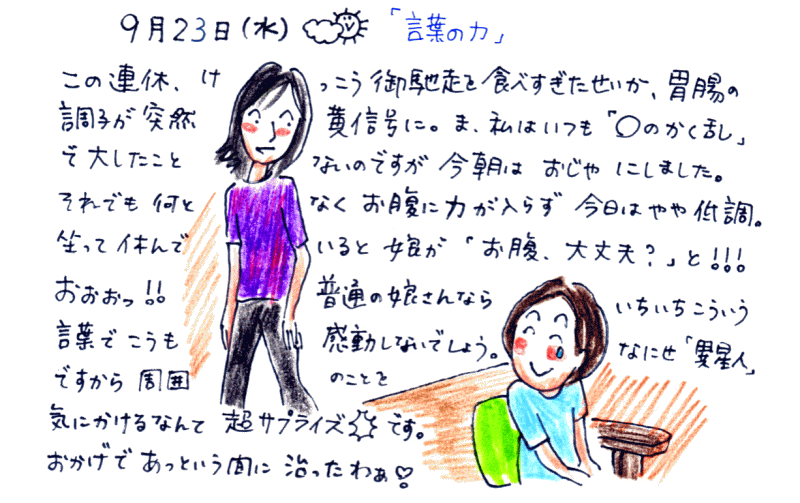 9月23日(水) 「言葉の力」
この連休、けっこう御馳走を食べすぎたせいか、胃腸の
調子が突然黄信号に。ま、私はいつも「〇のかく乱」
で大したことないのですが今朝はおじやにしました。
それでも何となくお腹に力が入らず今日はやや低調。
坐って休んでいると娘が「お腹、大丈夫?」と!!!
おおおっ!!普通の娘さんならいちいちこういう
言葉でこうも感動しないでしょう。なにせ「異星人」
ですから周囲のことを
気にかけるなんて超サプライズです。
おかげであっという間に治ったわぁ♡